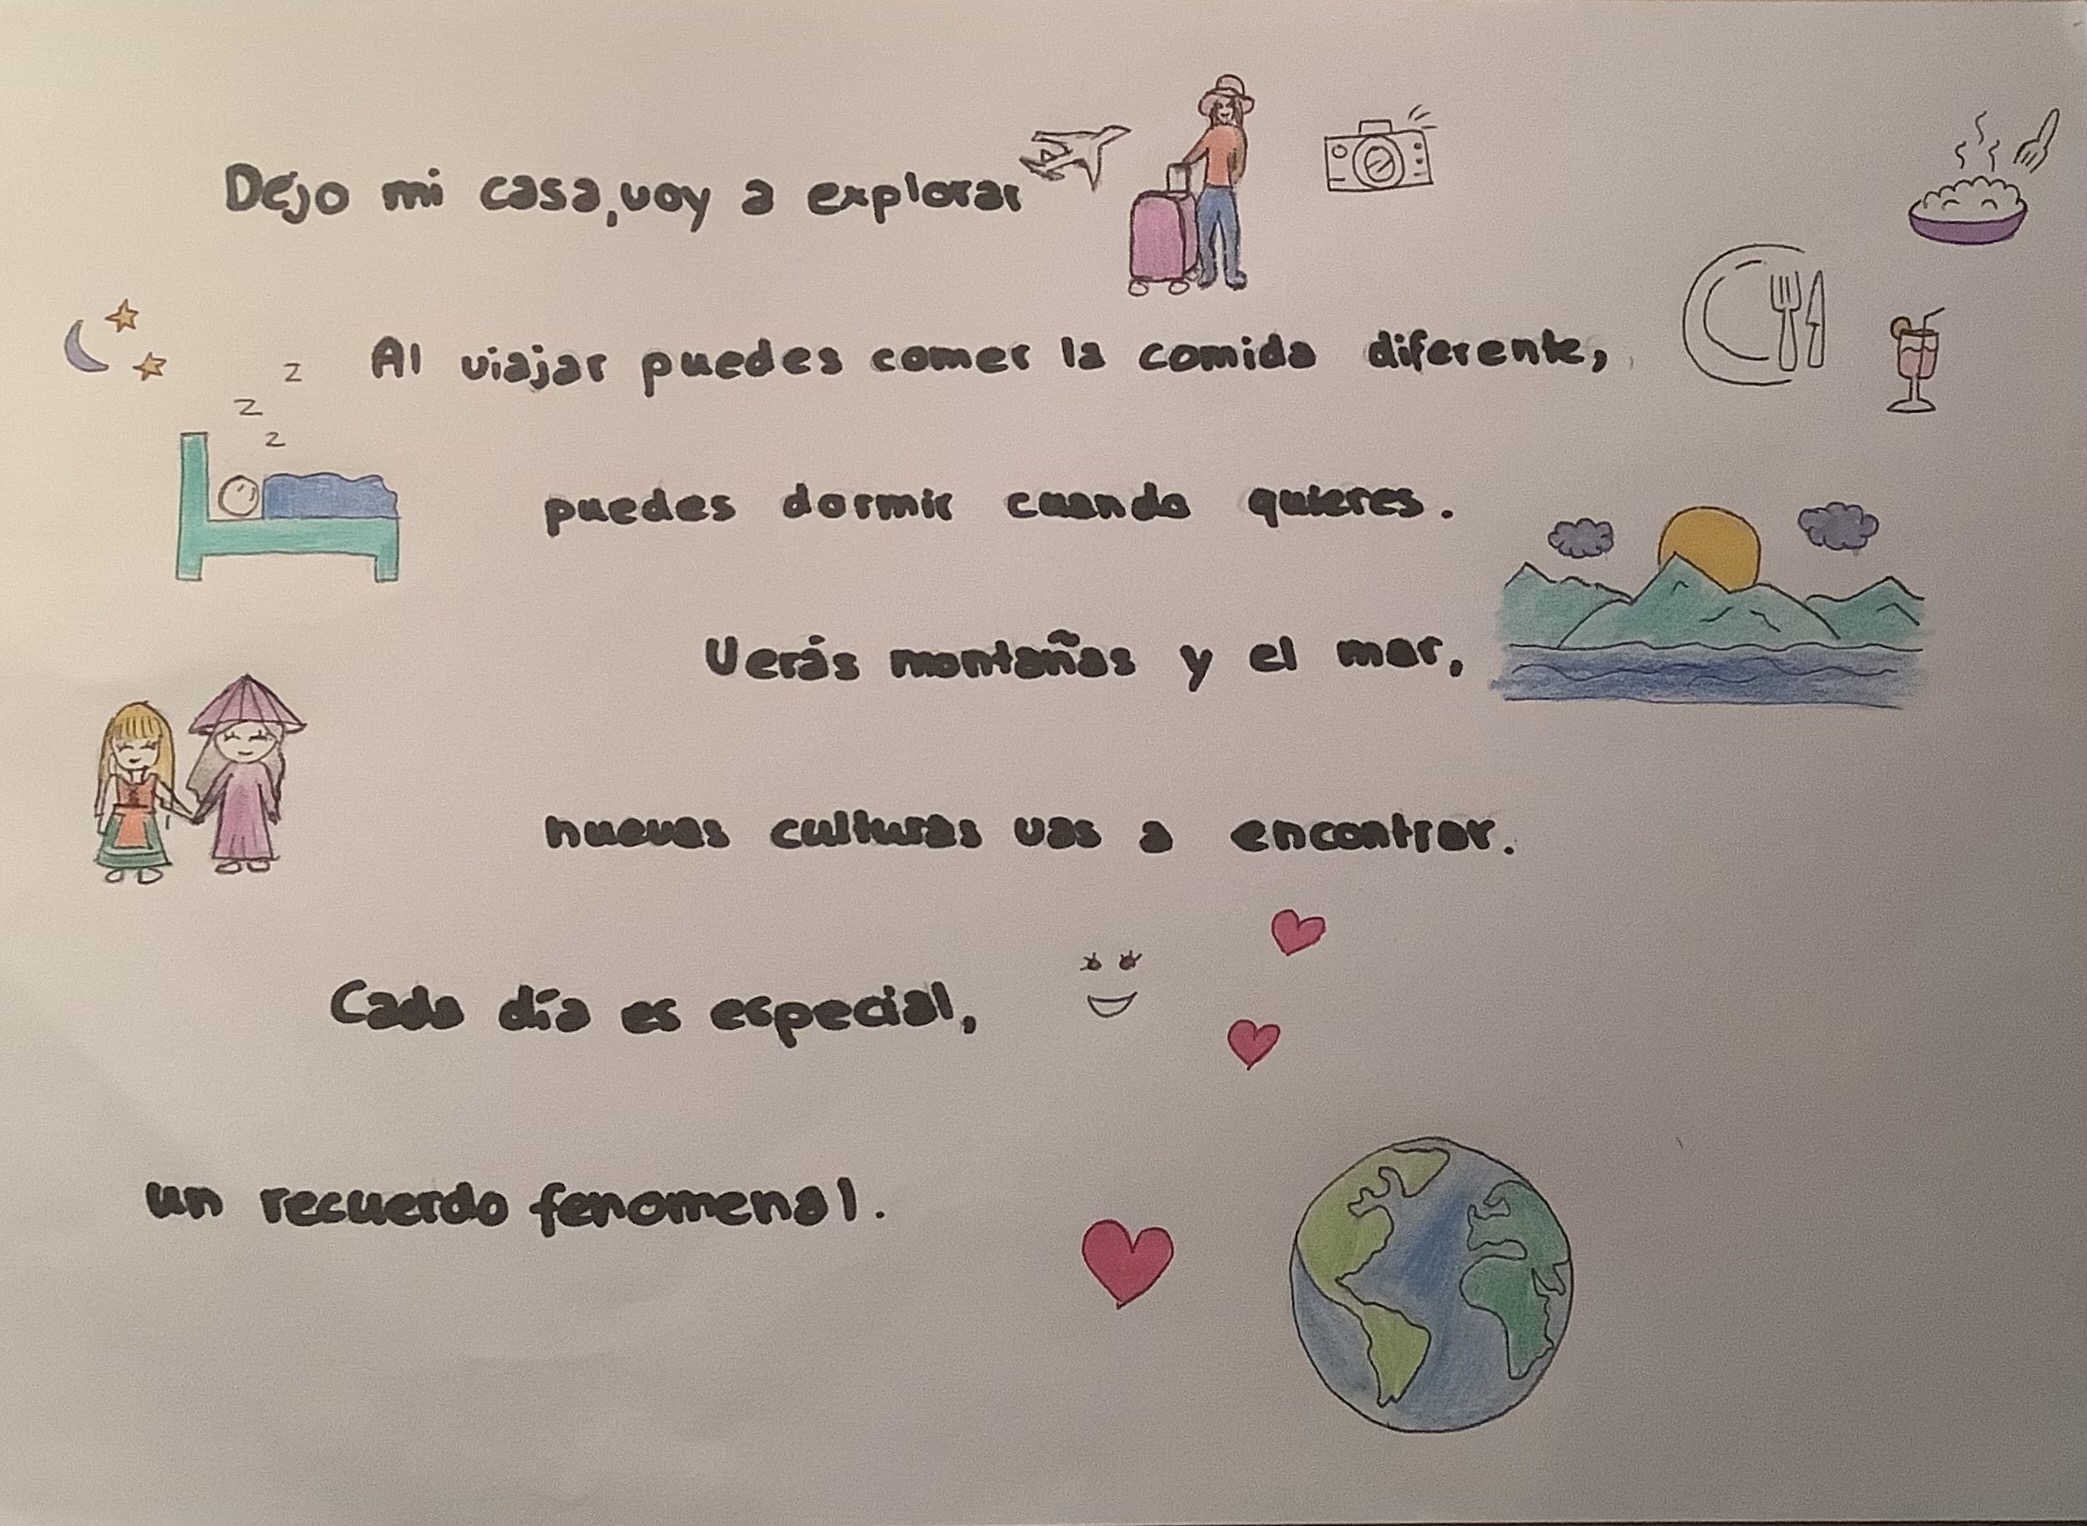 Dejo mi casa, voy a explorar
z
Al viajar puedes comer la comida diferente,
z
z
puedes dormir cuando quieres.
Verás montañas y el mar,
nuevas culturas vas a encontrar.
Cada día es especial,
un recuerdo fenomenal.